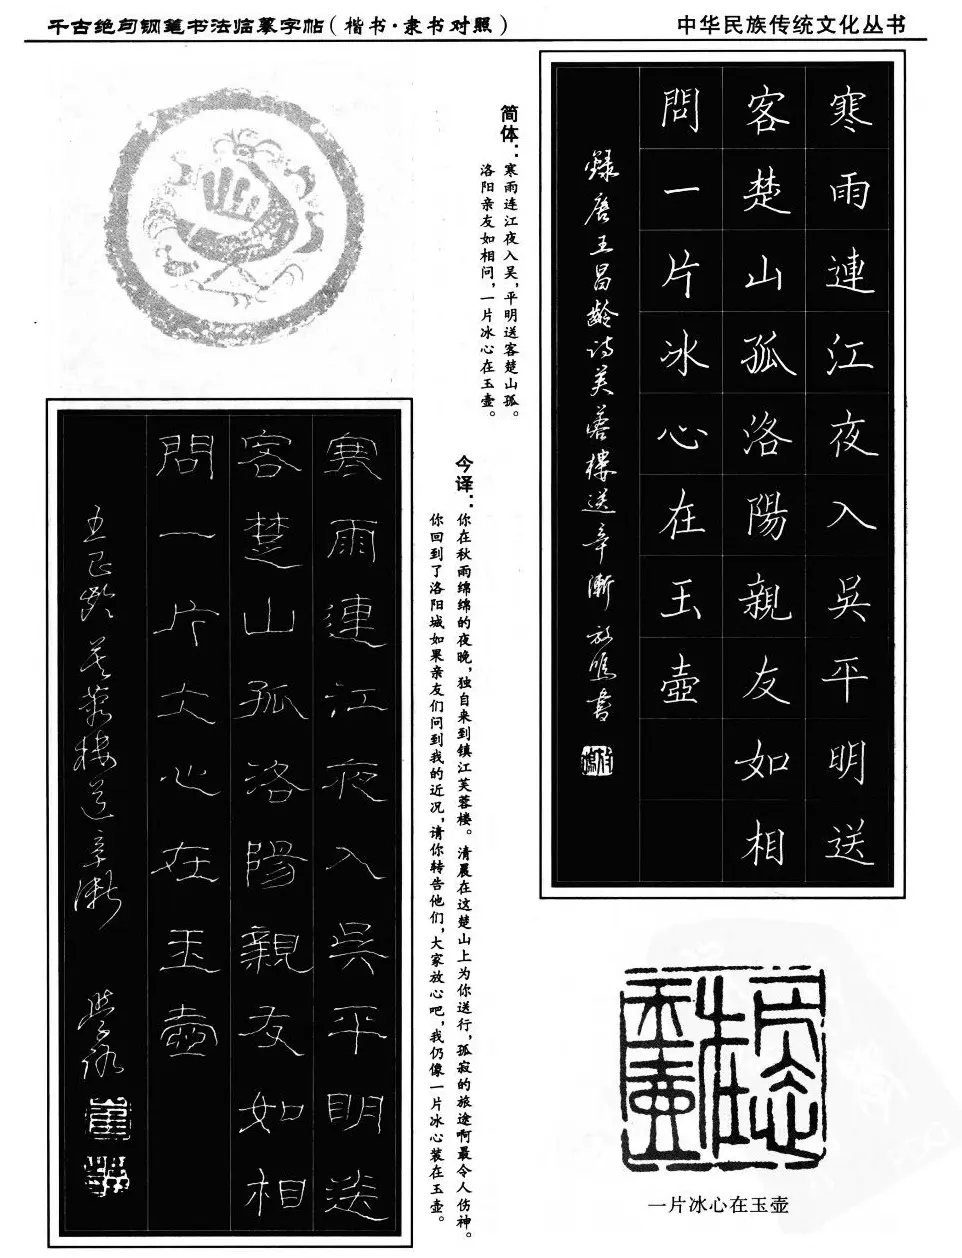 千古绝句钢笔书法临摹字帖(楷书·隶书对照)
中华民族传统文化丛书
寒雨連江夜入吳平明送
客楚山孤洛陽親友如相
問一片冰心在玉壺
錄唐王昌齡诗芙蓉樓送辛漸
简体:
寒雨连江夜入吴,平明送客楚山孤。
洛阳亲友如相问,一片冰心在玉壶。
今译:
你在秋雨绵绵的夜晚,独自来到镇江芙蓉楼。清晨在这楚山上为你送行,孤寂的旅途啊最令人伤神。
你回到了洛阳城如果亲友们问到我的近况,请你转告他们,大家放心吧,我仍像一片冰心装在玉壶。
寒雨連江夜入吳平明送
客楚山孤洛陽親友如相
問一片冰心在玉壺
芙蓉樓送辛漸
一片冰心在玉壶